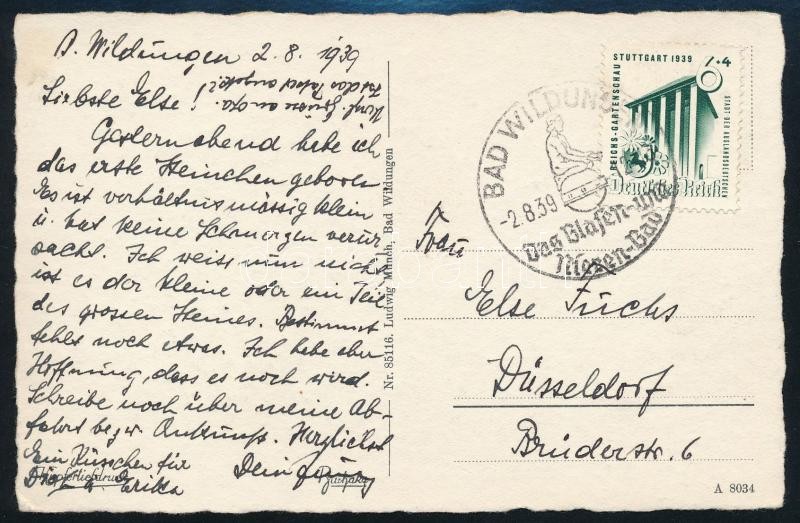 B. Wildungen 2.8.1939
Liebste Else!
Gesternabend habe ich
das erste Steinchen geboren
Es ist verhältnismässig klein
u. hat keine Schmerzen verur
sacht. Ich weiss nun nicht
ist es der kleine oder ein Teil
des grossen Steines. Bestimmt
fehlt noch etwas. Ich habe aber
Hoffnung, dass es noch wird.
Schreibe noch über meine Ab-
fahrt bezw. Ankunft. Herzlichst
Ein Küsschen für Dein
u. Erika
Kupfertiefdruck
Nr. 85116. Ludwig Münch, Bad Wildungen
STUTTGART 1939
REICHS-GARTENSCHAU
STADT DER AUSLANDSDEUTSCHEN
Deutsches Reich
BAD WILDUNGEN
-2.8.39
Das Blasen- und
Nieren-Bad
Frau
Else Fuchs
Düsseldorf
Brüderstr. 6
A 8034